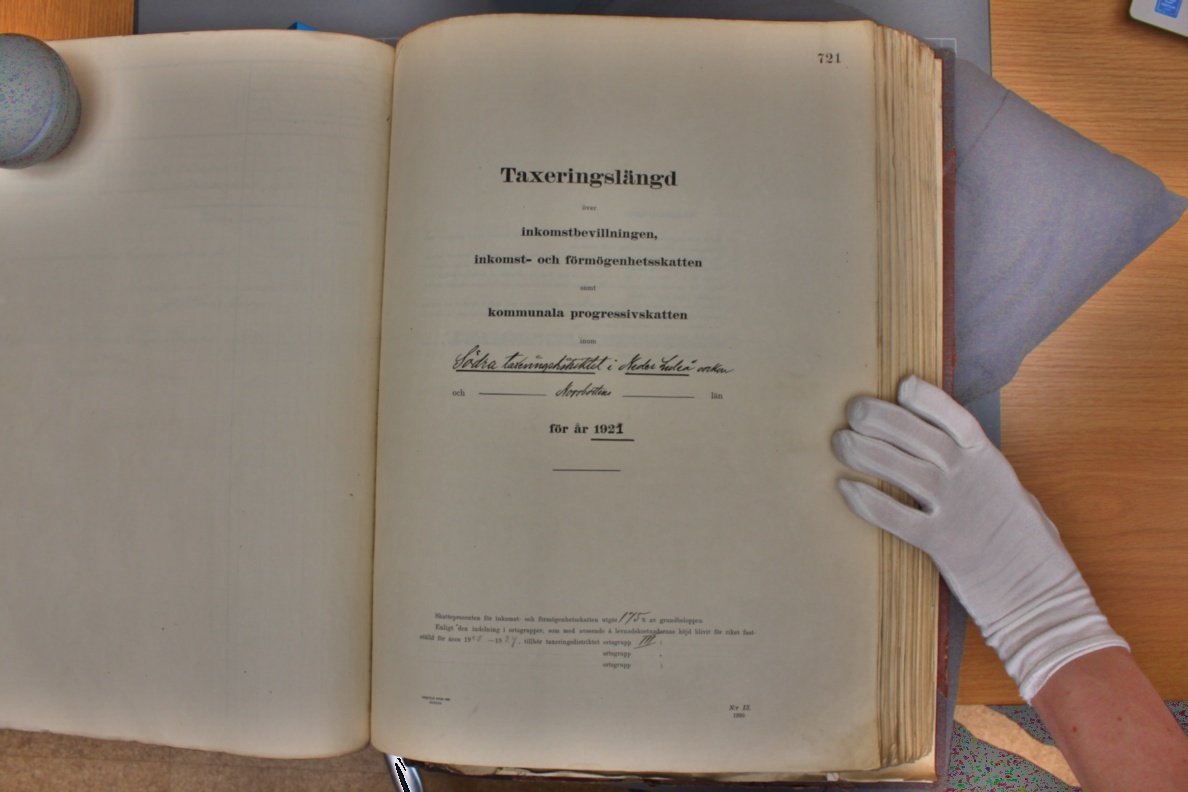 721
Taxeringslängd
över
inkomstbevillningen,
inkomst- och förmögenhetsskatten
samt
kommunala progressivskatten
inom
Södra taxeringsdistriktet i Neder Luleå socken
och Norrbottens län
för år 1921
Skatteprocenten för inkomst- och förmögenhetsskatten utgör 175 % av grundbeloppen.
Enligt den indelning i ortsgrupper, som med avseende å levnadskostnadernas höjd blivit för riket fast-
ställd för åren 19 —19 , tillhör taxeringsdistriktet ortsgrupp III ;
ortsgrupp ,
ortsgrupp ;
Nr 22.